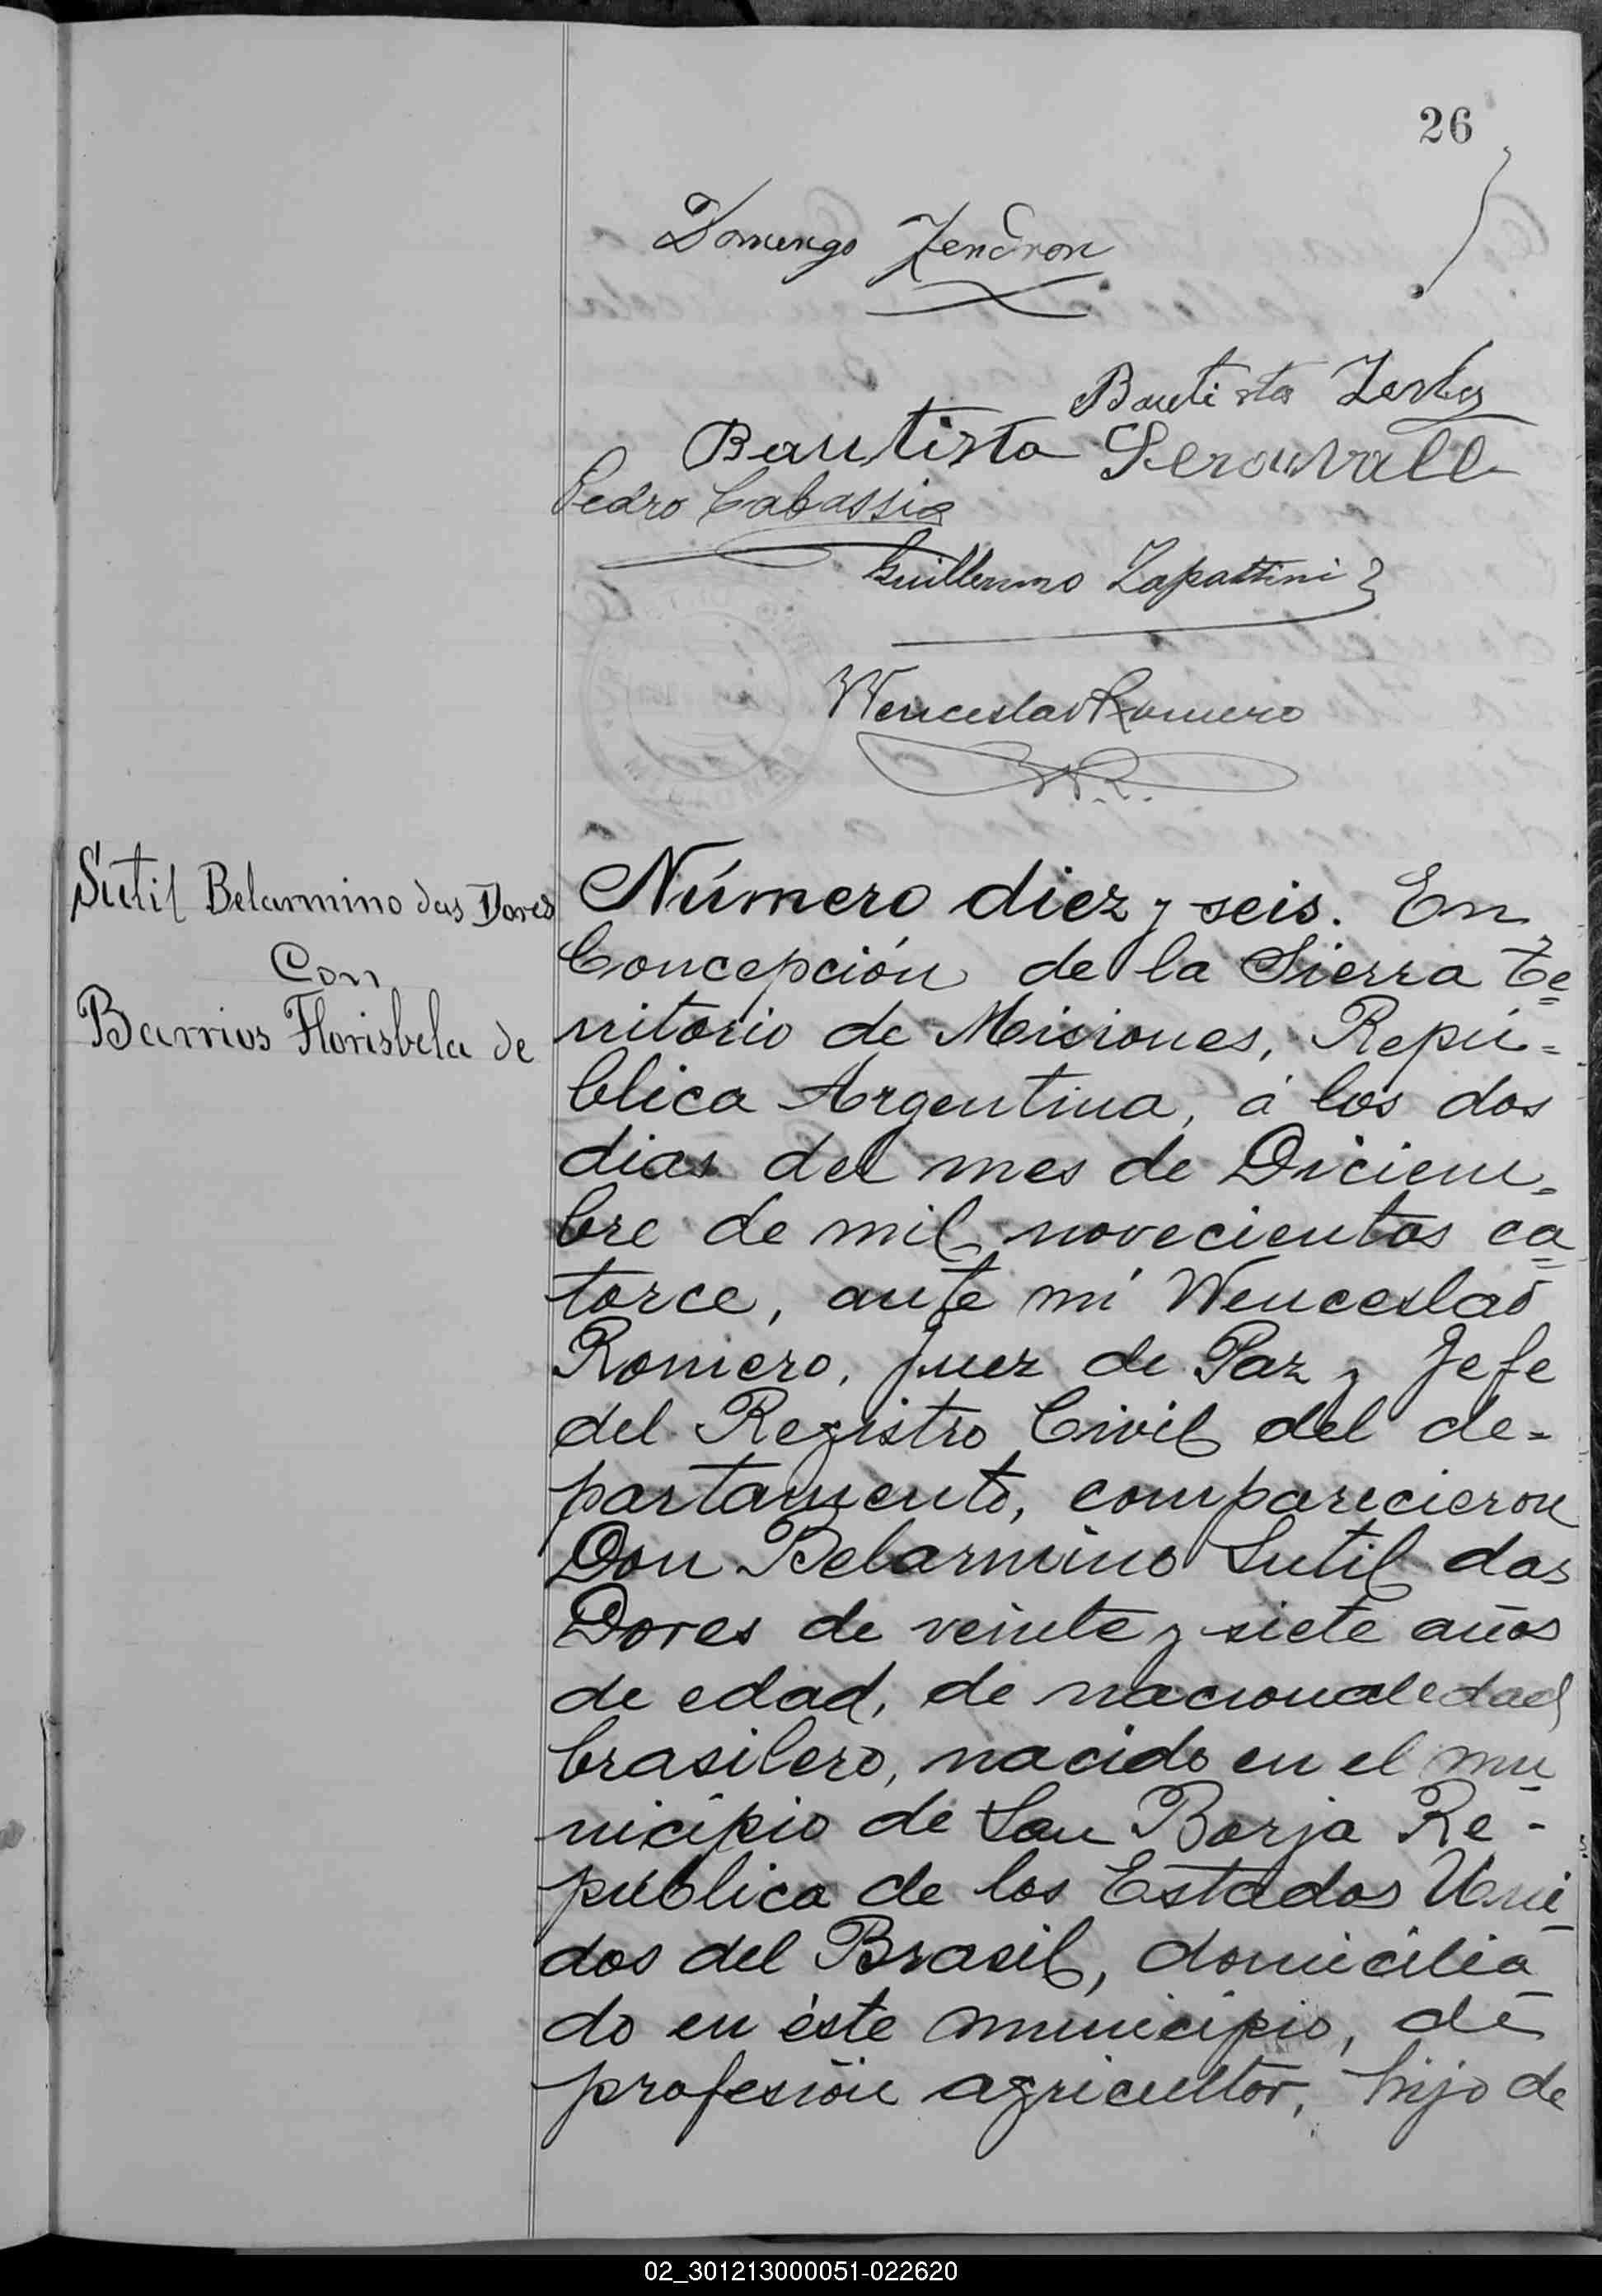 26
Domingo Zendron
Bautista
Bautista
Pedro Cabassia
Guillermo Zapattini
Wenceslao Romero
W.R.
Sutil Belarmino das Dores
Con
Barrios Florisbela de
Número diez y seis. En
Concepción de la Sierra Te=
rritorio de Misiones, Repú=
blica Argentina, á los dos
dias del mes de Diciem=
bre de mil novecientos ca=
torce, ante mí Wenceslao
Romero, Juez de Paz y Jefe
del Registro Civil del de=
partamento, comparecieron
Don Belarmino Sutil das
Dores de veinte y siete años
de edad, de nacionalidad
brasilero, nacido en el mu
nicipio de San Borja Re-
pública de los Estados Uni
dos del Brasil, domicilia
do en éste municipio, de
profesión agricultor, hijo de
02_301213000051-022620